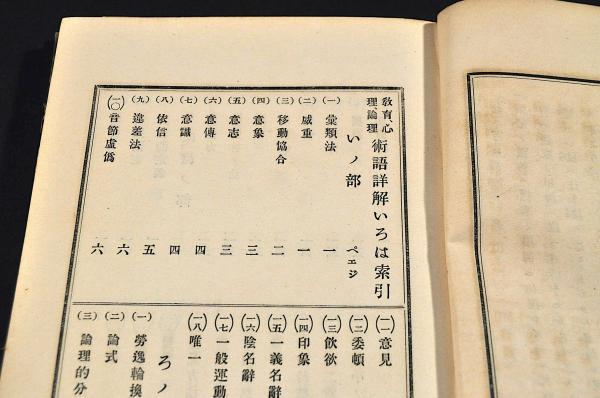 教育、心理、論理 術語詳解いろは索引
いノ部 ペェジ
(一) 彙類法 一
(二) 威重 一
(三) 移動協合 二
(四) 意象 三
(五) 意志 三
(六) 意傳 四
(七) 意識 四
(八) 依信 五
(九) 違差法 六
(一〇) 音節虛僞 六
(一一) 意見
(一二) 委頓
(一三) 飮欲
(一四) 印象
(一五) 一義名辭
(一六) 陰名辭
(一七) 一般運動
(一八) 唯一
ろノ
(一) 勞逸輪換
(二) 論式
(三) 論理的分